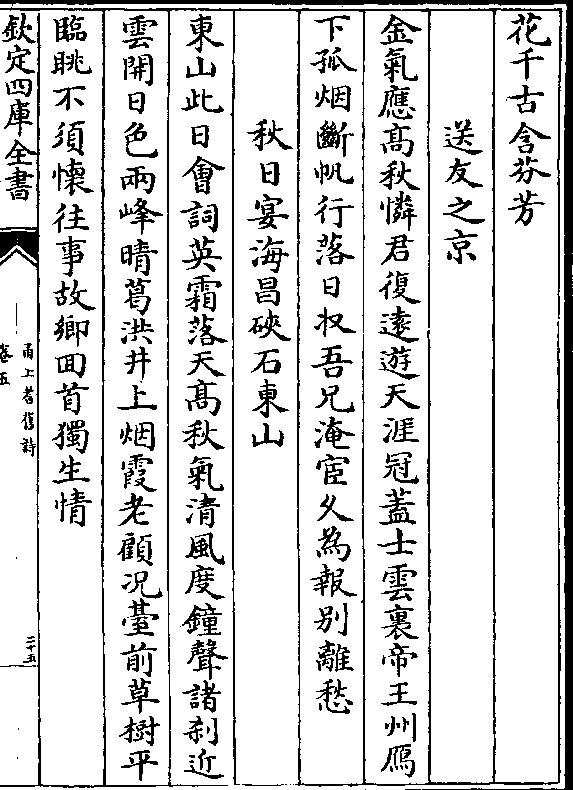 花千古含芬芳
送友之京
金氣應髙秋憐君復逺遊天涯冠蓋士雲裏帝王州鴈
下孤烟斷帆行落日收吾兄淹宦久為報别離愁
秋日宴海昌硤石東山
東山此日會詞英霜落天髙秋氣清風度鐘聲諸刹近
雲開日色兩峰晴葛洪井上烟霞老顧况臺前草樹平
臨眺不須懷往事故鄉囬首獨生情
欽定四庫全書
甬上耆舊詩
卷五
二十五